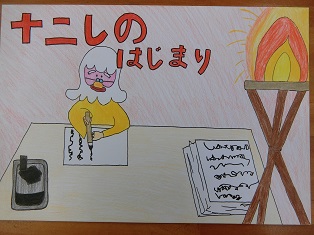 十二しの
はじまり